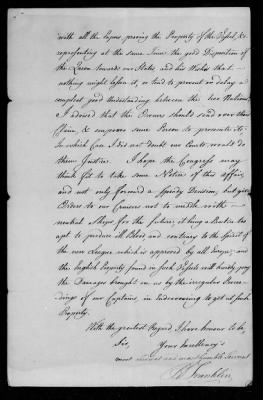 with all the Papers proving the Property of the Vessel, &
representing at the same Time the good Disposition of
the Queen towards our States and his Wishes that
nothing might lessen it, or tend to prevent or delay a
compleat good Understanding between the two Nations
I advised that the Owners should send over their
Claim, & empower some Person to prosecute it,
in which Case I did not doubt our Courts would do
them Justice. I hope the Congress may
think fit to take some Notice of this affair,
and not only forward a Speedy Decision, but give
Orders to our Cruisers not to meddle with
neutral Ships for the future, it being a Practice
apt to produce ill Blood, and contrary to the Spirit of
the new League which is approved by all Europe; and
the English Property found in such Vessels will hardly pay
the Damages brought on us by the irregular Proceed-
ings of our Captains, in endeavouring to get at such
Property.
With the greatest Regard, I have the honour to be,
Sir, Your Excellency's
most obedient and most humble Servant
B Franklin